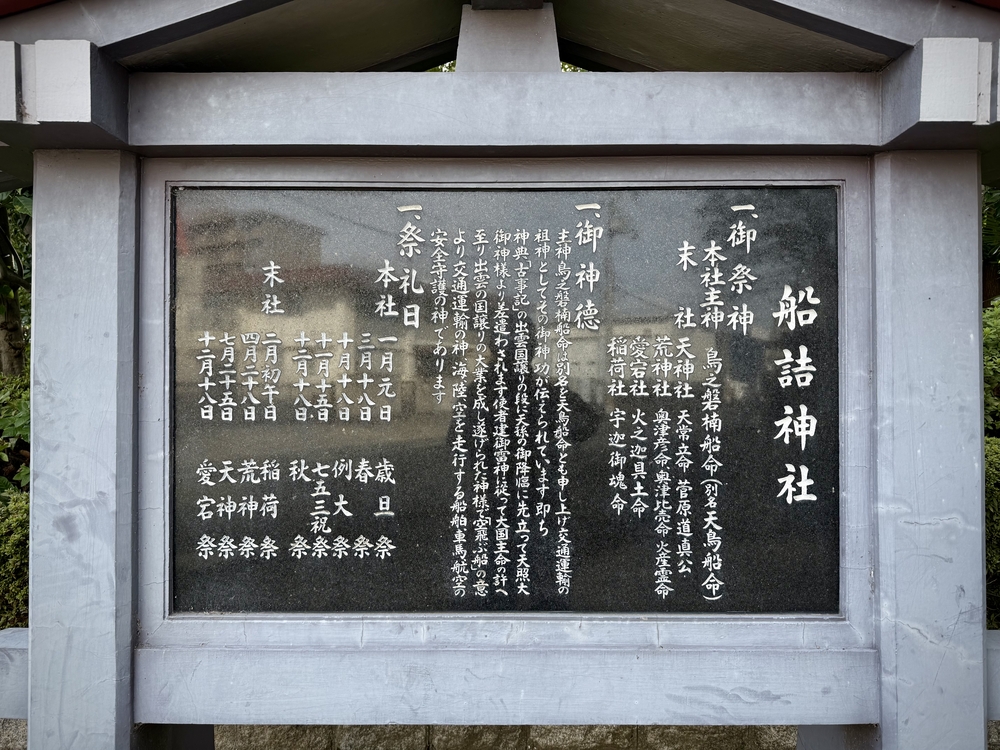 船詰神社
一、御祭神
本社主神 鳥之磐楠船命(別名天鳥船命)
末社 天神社 天常立命 菅原道真公
荒神社 奥津彦命奥津比売命 火産霊命
愛宕社 火之迦具土命
稲荷社 宇迦御魂命
一、御神德
主神鳥之磐楠船命は別名を天鳥船命とも申し上げ交通運輸の
祖神としてその御神功が伝えられています 即ち
神典「古事記」の出雲国譲りの段に天孫の御降臨に先立って天照大
御神様より差遣わされます使者建御雷神に従って大国主命の許へ
至り出雲の国譲りの大業を成し遂げられた神様で「空飛ぶ船」の意
より交通運輸の神 海、陸、空を走行する船舶、車馬、航空の
安全守護の神であります
一、祭礼日
本社 一月元日 歳旦祭
三月十八日 春祭
十月十八日 例大祭
十一月十五日 七五三祝祭
十二月十八日 秋祭
末社 二月初午日 稲荷祭
四月二十八日 荒神祭
七月二十五日 天神祭
十二月十八日 愛宕祭